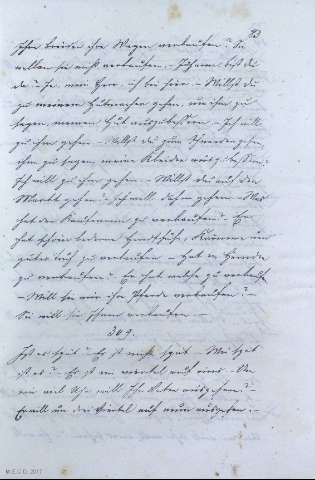 83
ihre beiden ihre Wagen verkaufen? Sie
wollen sie nicht verkaufen. Johann bist du
da? Ja, mein Herr, ich bin hier. – Willst du
zu meinem Hutmacher gehen, um ihm zu
sagen meinen Hut auszubessern – Ich will
zu ihm gehen – Willst du zum Schneider gehen,
ihm zu sagen, meine Kleider auszubessern?
Ich will zu ihm gehen – Willst du auf den
Markt gehen – Ich will dahin gehen – Was
hat der Kaufmann zu verkaufen? Er
hat schöne lederne Handschuhe, Kämme und
gutes Tuch zu verkaufen – Hat er Hemden
zu verkaufen? Er hat welche zu verkaufen
– Will er mir ihre Pferde verkaufen? –
Sie will sie Ihnen verkaufen. –
349.
Ist es spät? – Es ist nicht spät – Wie spät
ist es? – Es ist ein viertel auf eins – Um
wie viel Uhr will Ihr Vater ausgehen? –
Er will um drei Viertel auf neun ausgehen. –
M.E.C.D. 2017